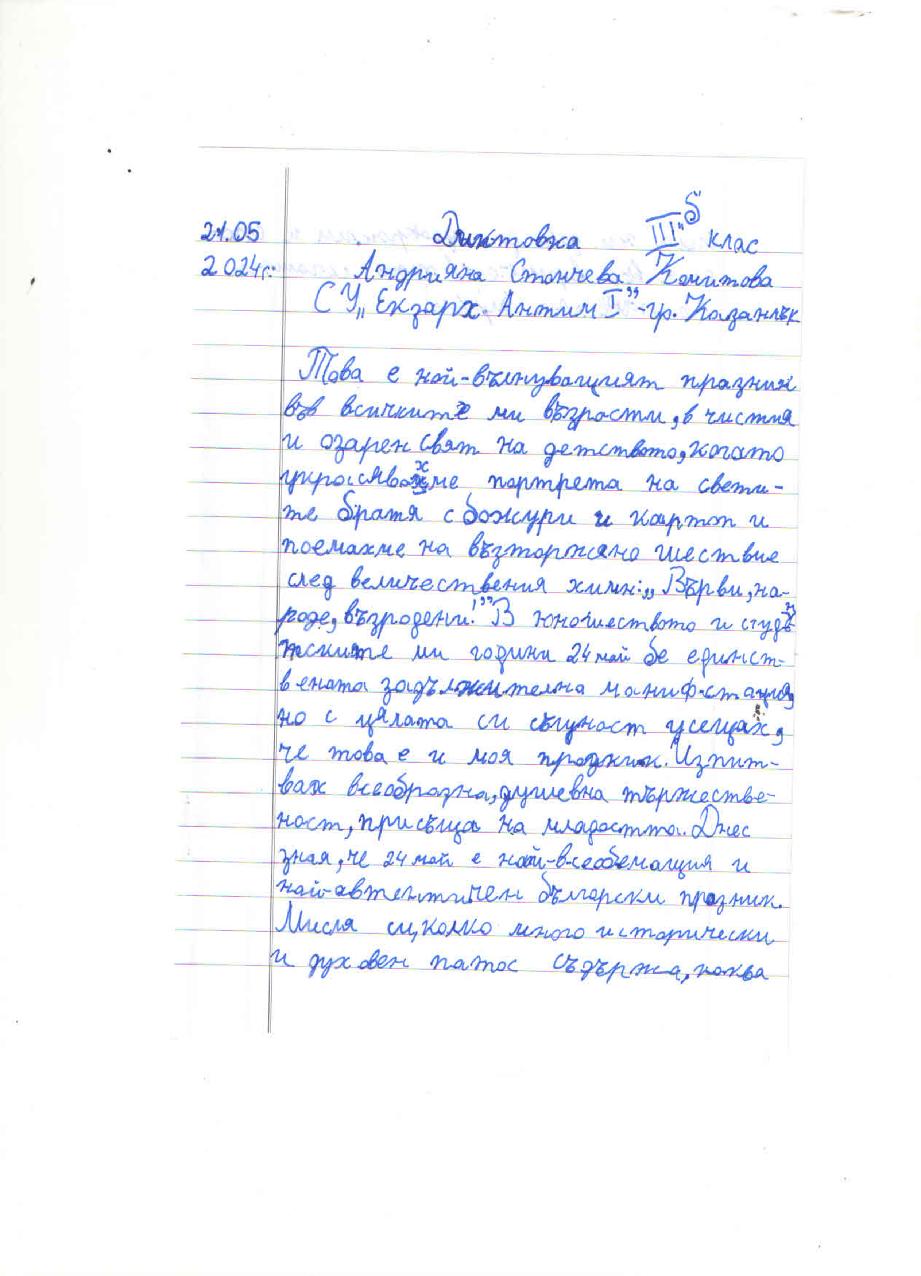 21.05 Диктовка III "б клас
2024г. Андрияна Стойчева Комитова
СУ„ Екзарх. Антим I” -гр. Казанлък
Това е най-вълнуващият празник
във всичките ми възрасти, в чистия
и озарен свят на детството, когато
украсявахме портрета на свети-
те братя с божури и картон и
поемахме на възторжено шествие
след величествения химн: „Върви, на-
роде, възродени!” В юношеството и студен-
тските ми години 24 май бе единст-
вената задължителна манифестация,
но с цялата си същност усещах,
че това е и моя празник. Изпит-
вах всеобразна, душевна тържестве-
ност, присъща на младостта. Днес
зная, че 24 май е най-всеобемащия и
най-автентичен български празник.
Мисля си, колко много исторически
и духовен патос съдържа, каква